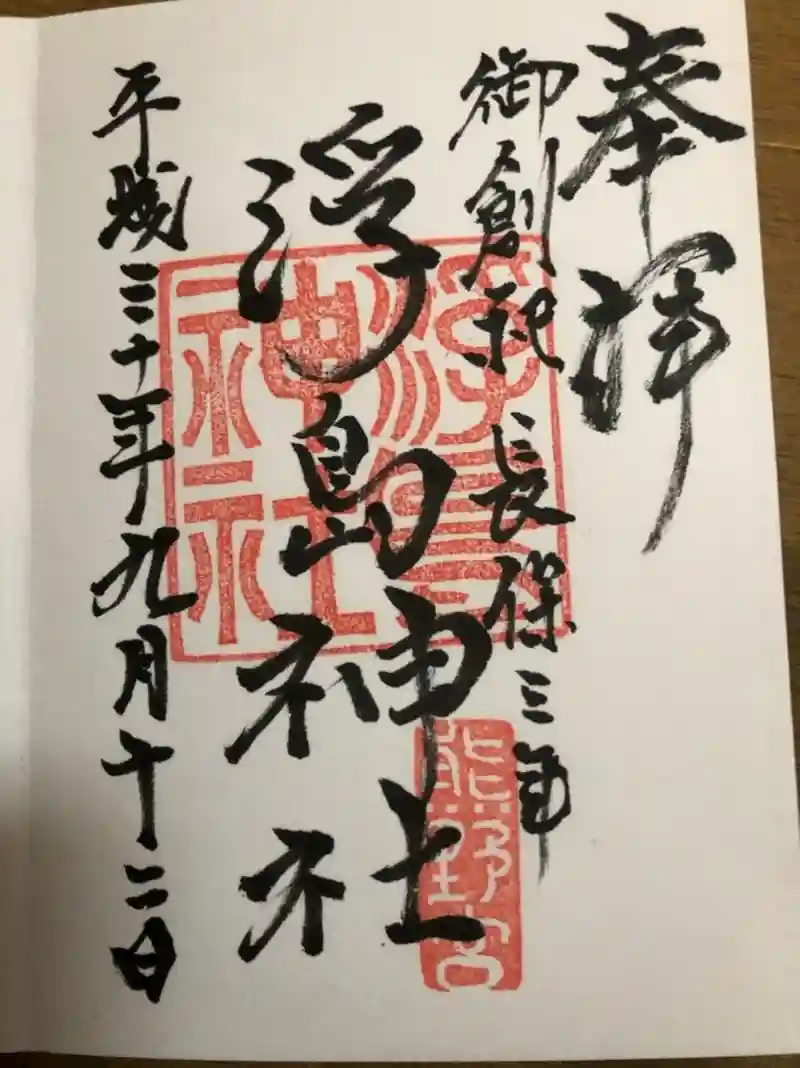 奉拝
御創祀 長保三年
浮島神社
平成三十年九月十二日
浮島神社
熊野宮